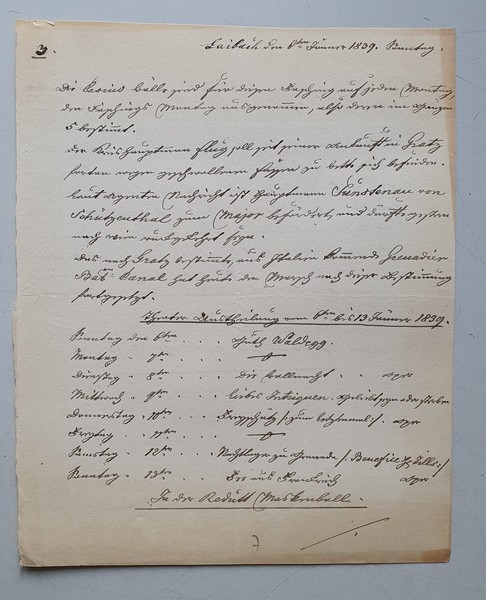 3.
Laibach den 6ten Jänner 1839. Sonntag.
Die Casino Balle sind für diesen Fasching auf jeden Montag,
den Faschings Montag ausgenommen, also deren im Ganzen
5 bestimmt.
Der Kreishauptmann Flug, soll seit seiner Ankunft in Gratz
wegen geschwollenen Füßen zu Bette sich befinden.
laut Nachricht ist Hauptmann von
Schützenthal zum Major befördert, und dürfte gestern
nach Wien sein.
Das nach Gratz bestimmte, aus Italien kommende Grenadier
Baton Canal hat heute den Marsch nach dieser Bestimmung
fortgesetzt.
Theater Austheilung vom 6ten bis 13 Jänner 1839.
Sonntag den 6ten . . . Guth Waldegg.
Montag " 7ten . . .
Dienstag " 8ten . . . Die Ballnacht . . Oper
Mittwoch " 9ten . . . Liebes Intriguen.
Donnerstag " 10ten . . . Freyschütz /: zum letztenmal :/. Oper
Freytag " 11ten . . .
Samstag " 12ten . . . Nachtlager zu Granada /: Benefice :/
Sonntag " 13ten . . . aus Frankreich Oper
In der Redutt Maskenball.
7